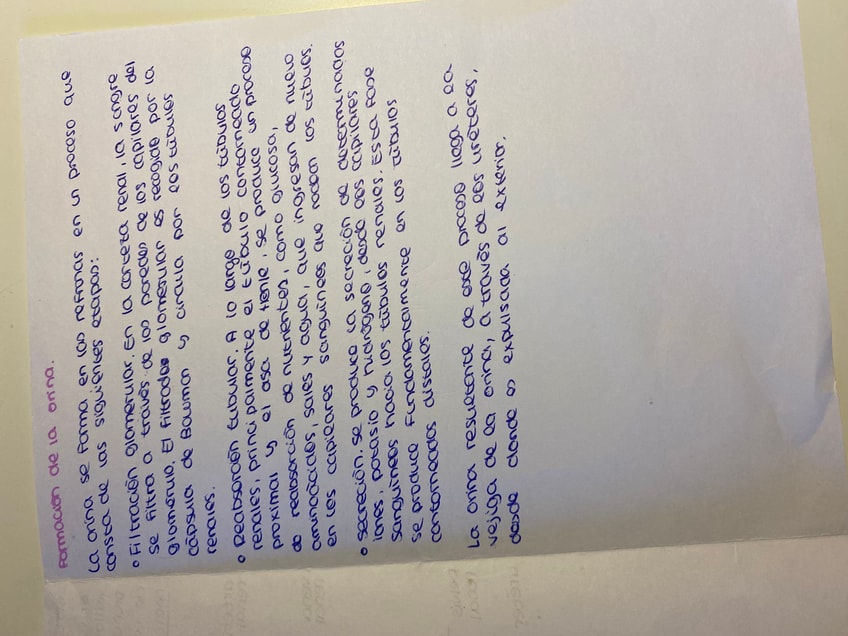 Formación de la orina.
La orina se forma en los refronas en un proceso que
consta de las siguientes etapas:
• Filtración glomerular. En la corteza renal, la sangre
se filtra a través de las paredes de los capilares del
glomérulo. El filtrado glomerular es recogido por la
cápsula de Bowman y circula por los túbulos
renales.
• Reabsorción tubular. A lo largo de los túbulos
renales, principalmente el túbulo contorneado
proximal y el asa de Henle, se produce un proceso
de reabsorción de nutrientes, como glucosa,
aminoácidos, sales y agua, que ingresan de nuevo
en los capilares sanguíneos que rodean los túbulos.
• Secreción. Se produce la secreción de determinados
iones, potasio y hidrógeno, desde los capilares
sanguíneos hacia los túbulos renales. Esta fase
se produce fundamentalmente en los túbulos
contorneados distales.
La orina resultante de este proceso llega a la
vejiga de la orina, a través de los uréteres,
desde donde es expulsada al exterior.